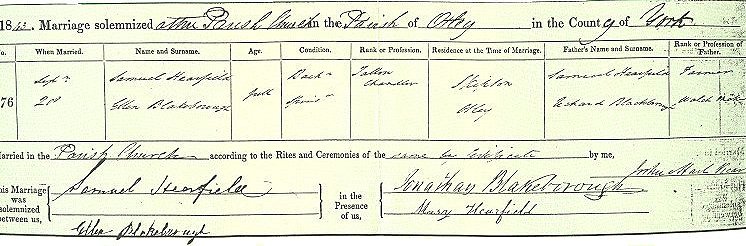 1843. Marriage solemnized at the Parish Church in the Parish of Otley in the County of York
No. When Married. Name and Surname. Age. Condition. Rank or Profession. Residence at the Time of Marriage. Father's Name and Surname. Rank or Profession of Father.
76 Sepr 28 Samuel Hearfield full Bach r Tallow Chandler Samuel Hearfield Farmer
Ellen Blakeborough Spins r Otley Richard Blakeborough Watch
Married in the Parish Church according to the Rites and Ceremonies of the same by Certificate by me,
John
This Marriage was solemnized between us, Samuel Hearfield in the Presence of us, Jonathan Blakeborough
Ellen Blakeborough Mary Hearfield